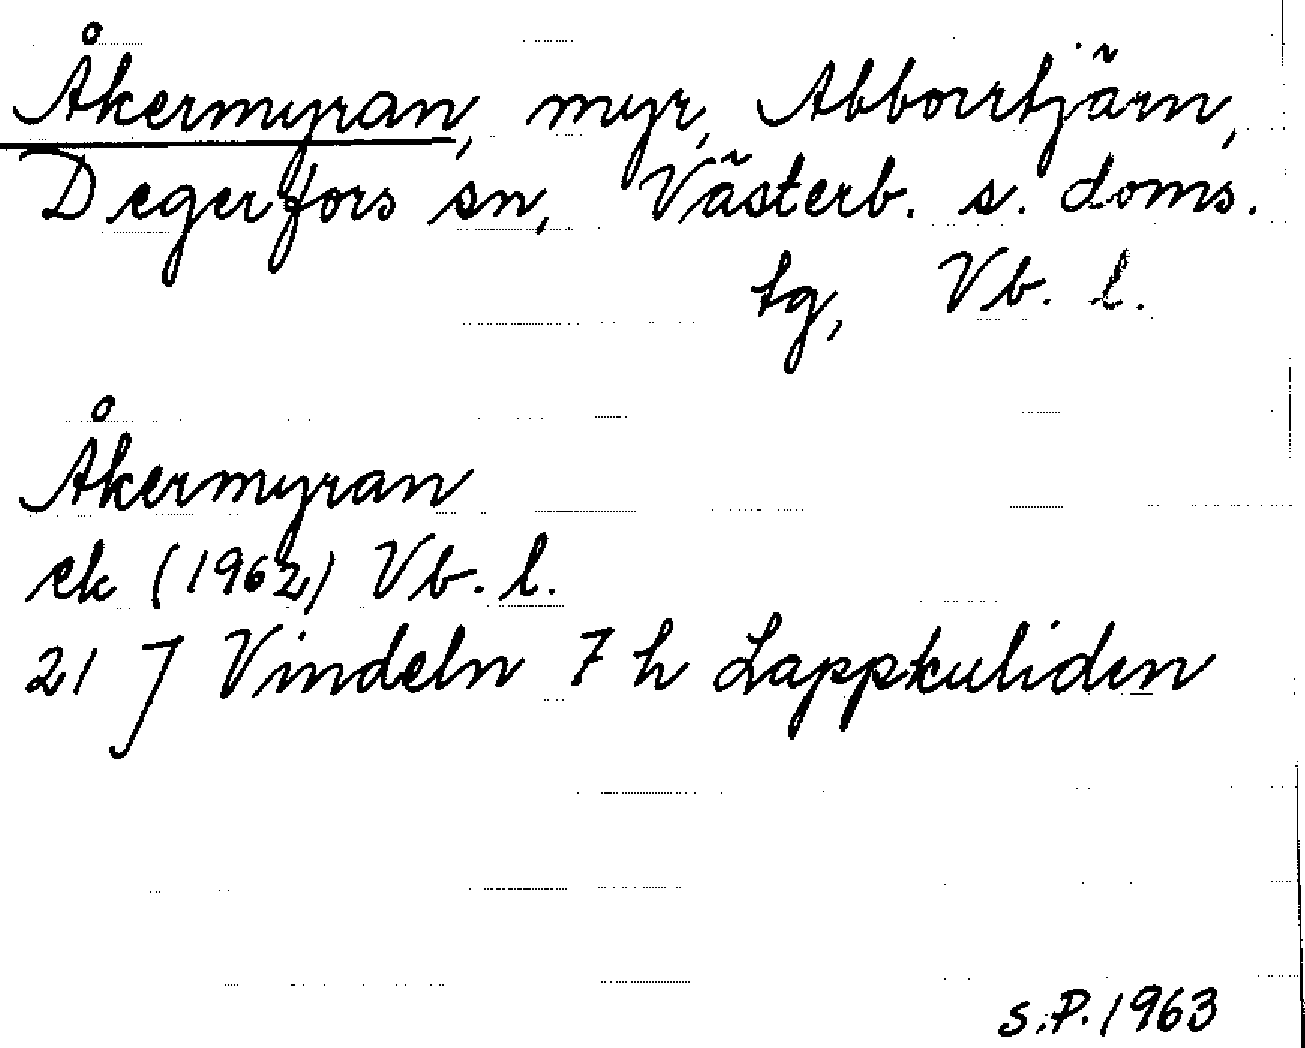 Åkermyran, myr, Abborrtjärn,
Degerfors sn, Västerb. s. doms.
tg, Vb. l.
Åkermyran
ek (1962) Vb. l.
21 J Vindeln 7 h Lappkuliden
S.P. 1963